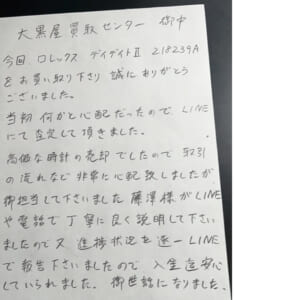 大黒屋買取センター 御中
今回、ロレックス デイデイトⅡ 218239A
をお買い取り下さり 誠にありがとう
ございました。
当初 何かと心配だったので、LINE
にて査定して頂きました。
高価な時計の売却でしたので 取引
の流れなど非常に心配致しましたが
御担当して下さいました 藤澤様がLINE
や電話で丁寧に良く説明して下さい
ましたので又 進捗状況を逐一LINE
で報告下さいましたので 入金迄安心
していられました。御世話になりました。